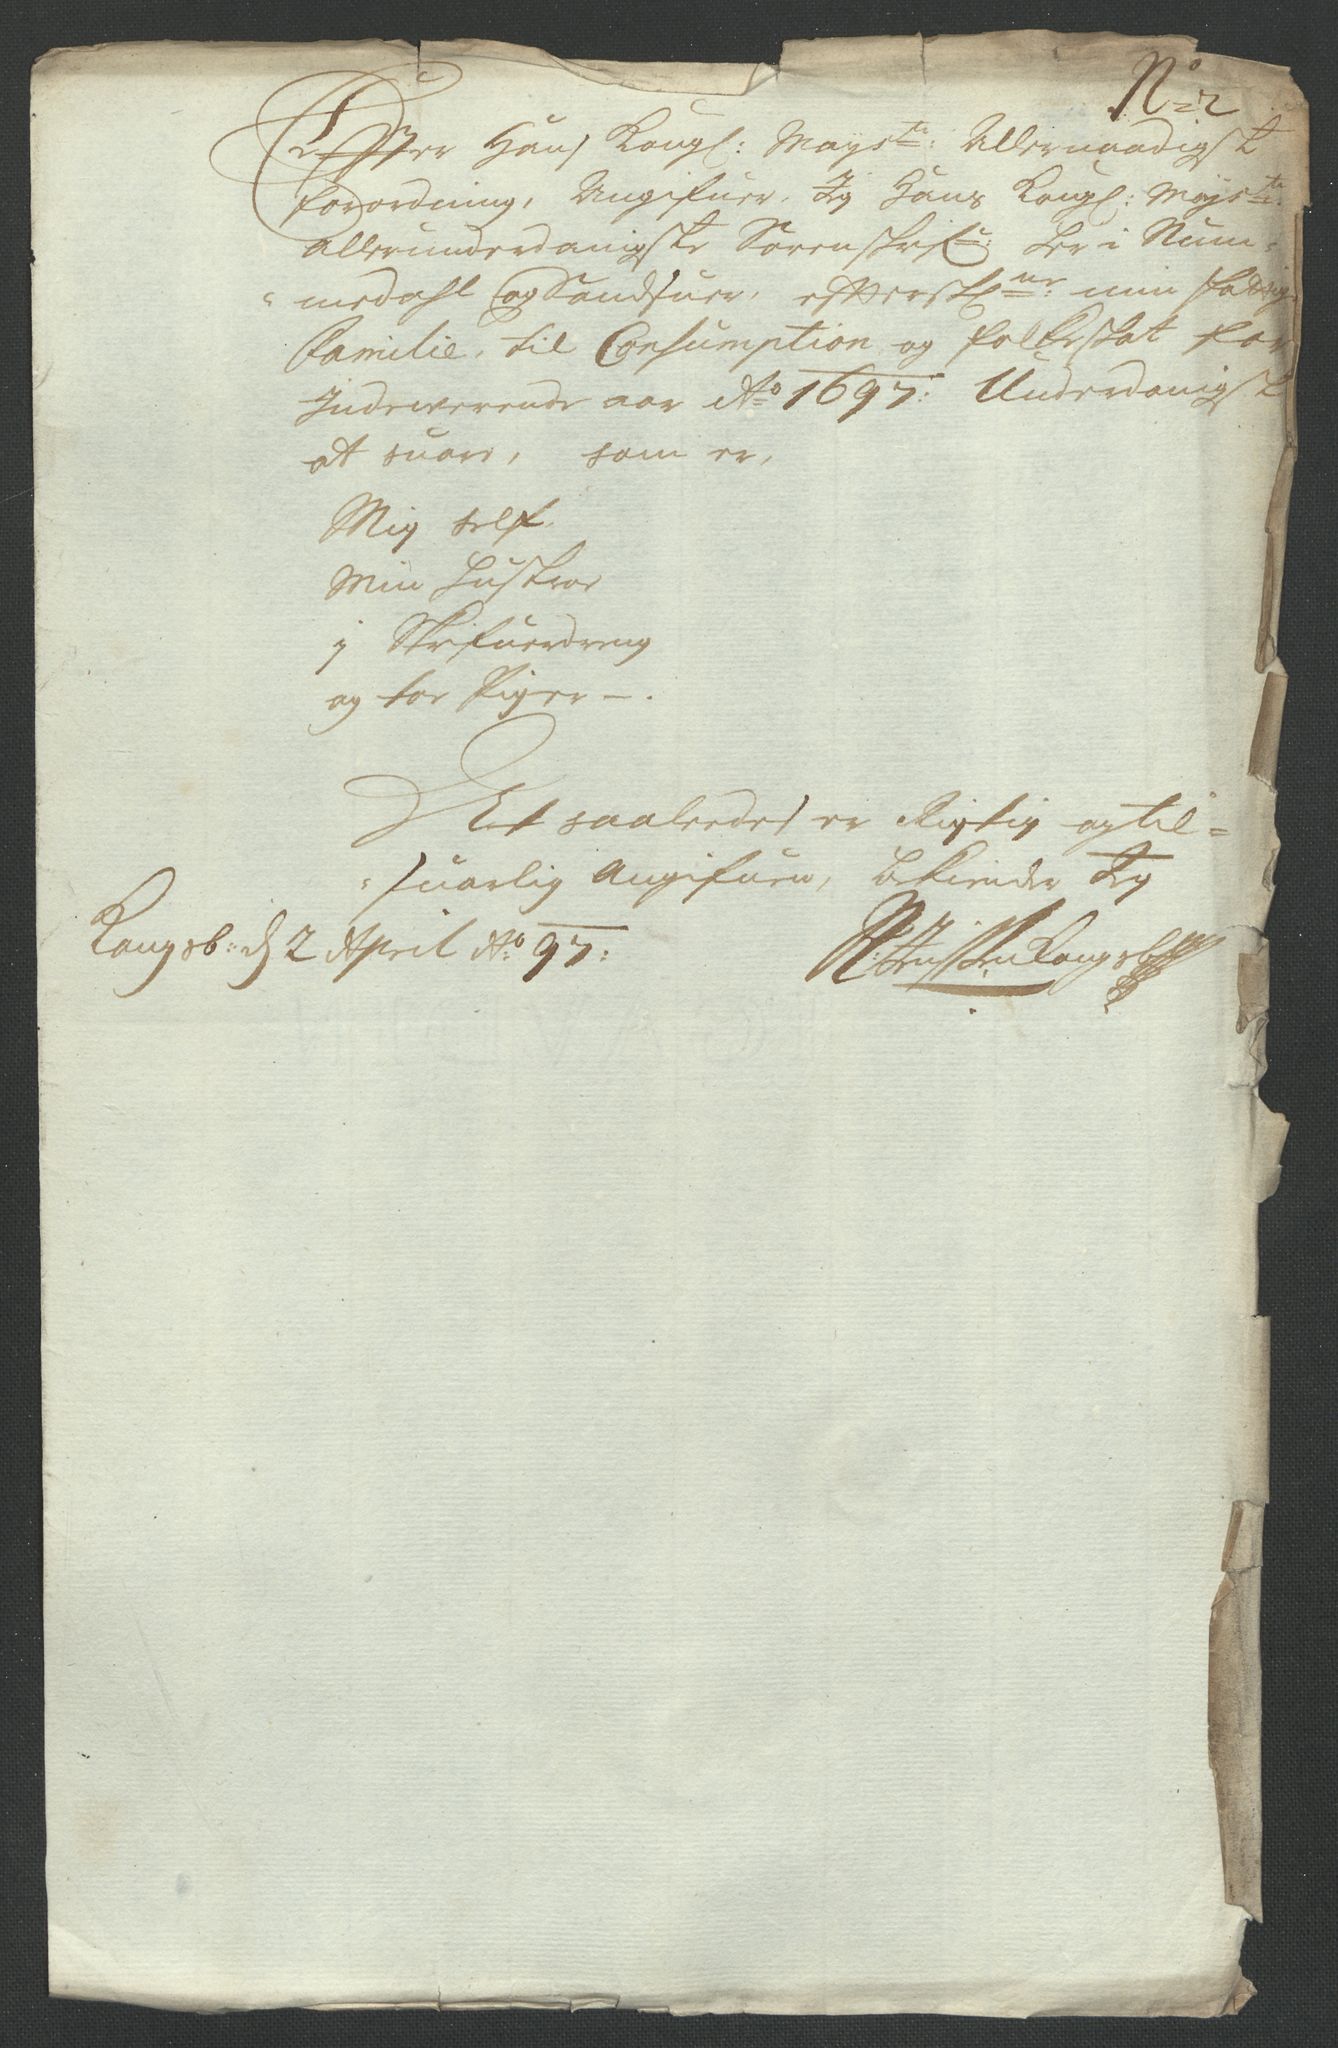 No 2
Effter Hans Kongl: Mayst: Allernaadigste
forordning, Angifuer Jeg Hans Kongl: Mayst:
allerunderdanigste Sorenskrifr: her i Num=
=medahl og Sandsuer, effterskrne: min fattige
Familie, til Consumption og folkeskat for
Indewerende aar Ao 1697: Underdanigst
at suare, som er,
Mig self.
Min Hustroe
1 Skrifuerdreng
og toe Piger —.
Det saaleedes er Rigtig og til=
=suarlig Angifuen, bekiender Jeg
Kongsb: d 2 April Ao 97:
Kongsb